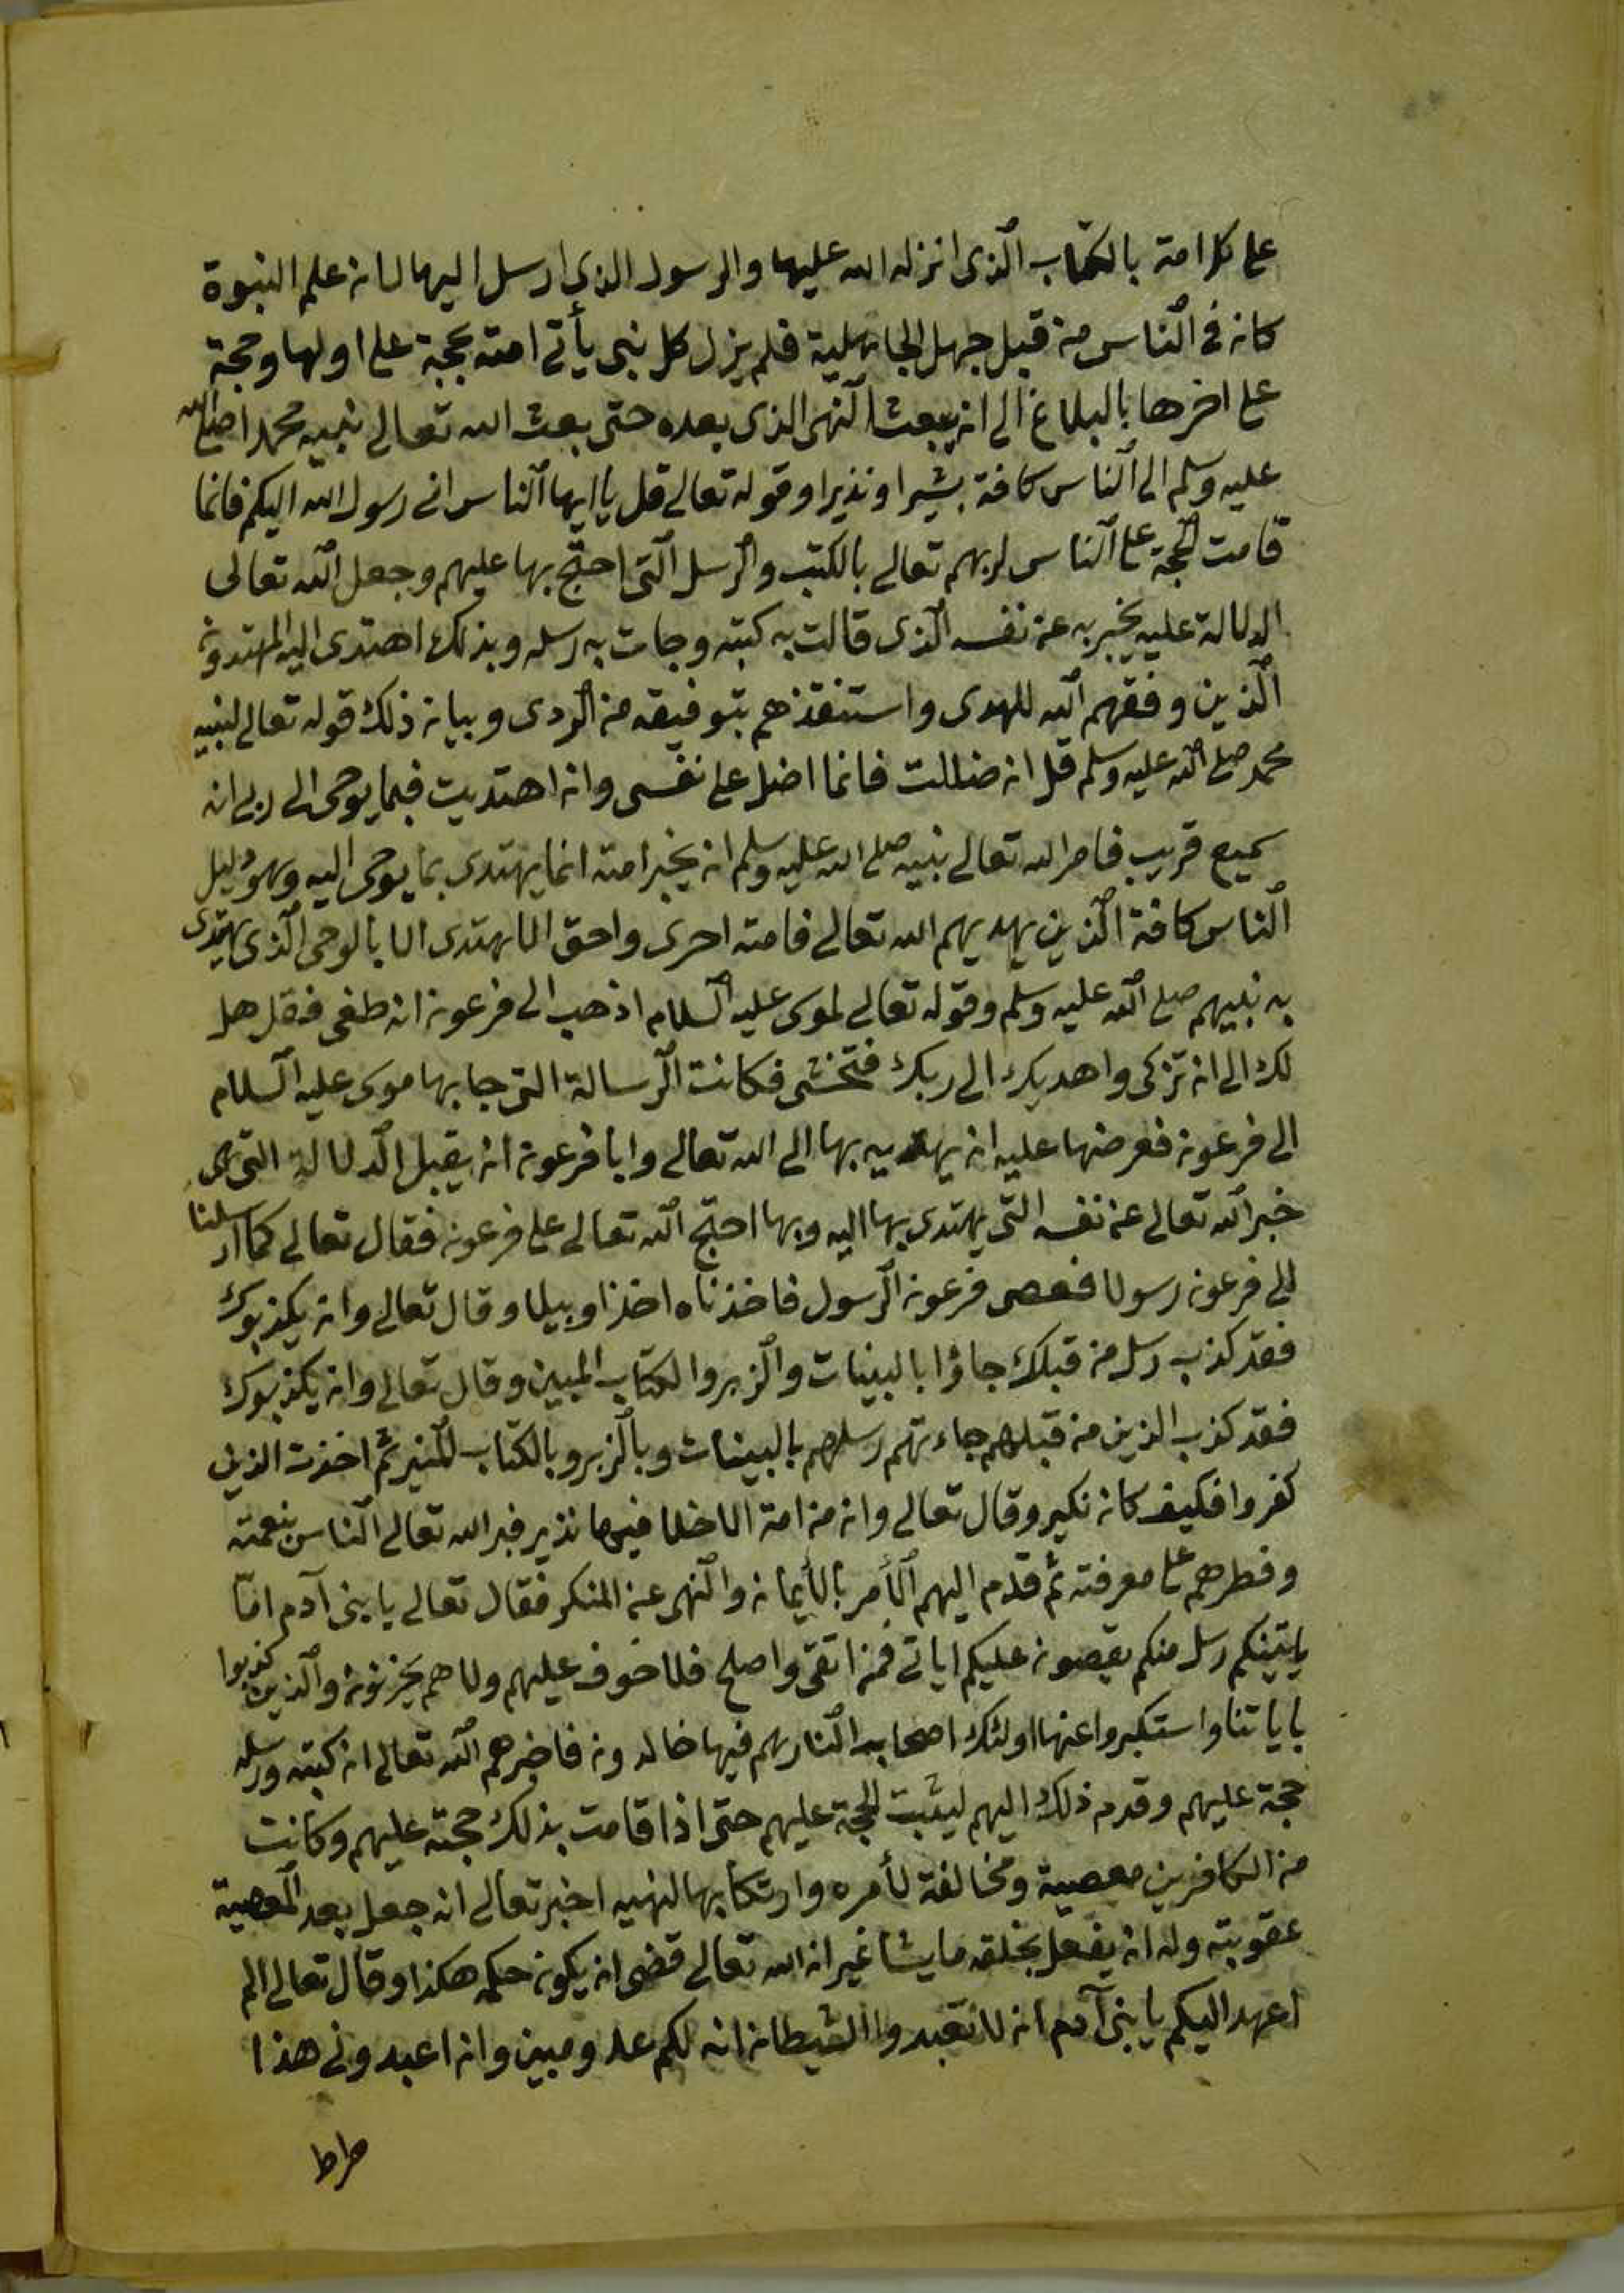 على كل امة بالكتاب الذى انزله الله عليها والرسول الذى ارسل اليها لان علم النبوة
كان فى الناس من قبل جهل الجاهلية فلم يزل كل نبى يأتى امته بحجة على اولها وحجة
على اخرها بالبلاغ الى ان يبعث النبى الذى بعده حتى بعث الله تعالى نبيه محمدا صلى الله
عليه وسلم الى الناس كافة بشيرا ونذيرا وقوله تعالى قل يا ايها الناس انى رسول الله اليكم فانما
قامت الحجة على الناس لربهم تعالى بالكتب والرسل التى احتج بها عليهم وجعل الله تعالى
الدلالة عليه بخبر به عن نفسه الذى قالت به كتبه وجات به رسله وبذلك اهتدى اليه المهتدون
الذين وفقهم الله للهدى واستنقذهم بتوفيقه من الردى وبيان ذلك قوله تعالى لنبيه
محمد صلى الله عليه وسلم قل ان ضللت فانما اضل على نفسى وان اهتديت فبما يوحى الى ربى انه
سميع قريب فامر الله تعالى نبيه صلى الله عليه وسلم ان يخبر امته انما يهتدى بما يوحى اليه وهو دليل
الناس كافة الذين يهديهم الله تعالى فامته احرى واحق الا يهتدى الا بالوحى الذى يهتدى
به نبيهم صلى الله عليه وسلم وقوله تعالى لموسى عليه السلام اذهب الى فرعون انه طغى فقل هل
لك الى ان تزكى واهديك الى ربك فتخشى فكانت الرسالة التى جا بها موسى عليه السلام
الى فرعون فعرضها عليه ان يهديه بها الى الله تعالى وابا فرعون ان يقبل الدلالة التى هى
خبر الله تعالى عن نفسه التى يهتدى بها اليه وبها احتج الله تعالى على فرعون فقال تعالى كما ارسلنا
الى فرعون رسولا فعصى فرعون الرسول فاخذناه اخذا وبيلا وقال تعالى وان يكذبوك
فقد كذب رسل من قبلك جاؤا بالبينات والزبر والكتاب المبين وقال تعالى وان يكذبوك
فقد كذب الذين من قبلهم جاءتهم رسلهم بالبينات وبالزبر وبالكتاب المنير ثم اخذت الذين
كفروا فكيف كان نكير وقال تعالى وان من امة الا خلا فيها نذير فبر الله تعالى الناس بنعمته
وفطرهم على معرفته ثم قدم اليهم الأمر بالأيمان والنهى عن المنكر فقال تعالى يا بنى آدم امّا
ياتينكم رسل منكم يقصون عليكم اياتى فمن اتقى واصلح فلا خوف عليهم ولا هم يحزنون والذين كذبوا
باياتنا واستكبروا عنها اولئك اصحاب النار هم فيها خالدون فاخبرهم الله تعالى ان كتبه ورسله
حجة عليهم وقدم ذلك اليهم ليثبت الحجة عليهم حتى اذا قامت بذلك حجته عليهم وكانت
من الكافرين معصية ومخالفة لأمره وارتكابها لنهيه اخبر تعالى انه جعل بعد المعصية
عقوبته وله ان يفعل بخلقه ما يشا غير ان الله تعالى قضى ان يكون حكمه هكذا وقال تعالى الم
اعهد اليكم يا بنى آدم ان لا تعبدوا الشيطان انه لكم عدو مبين وان اعبدونى هذا
صراط